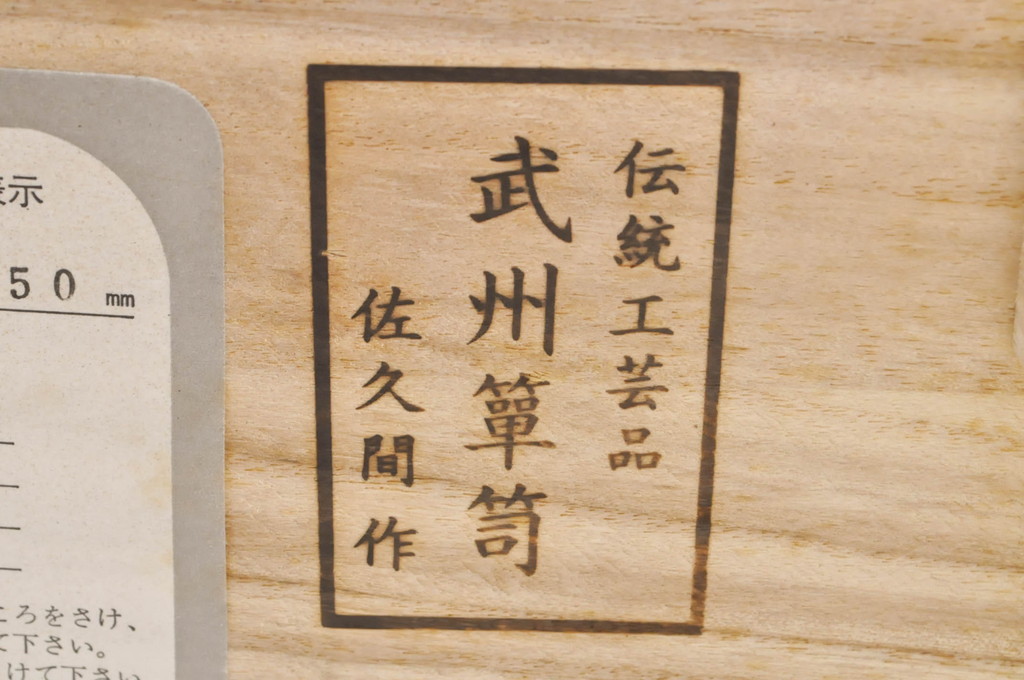 伝統工芸品
武州簞笥
佐久間作
表示
50 mm
ころをさけ、
て下さい。
けて下さい